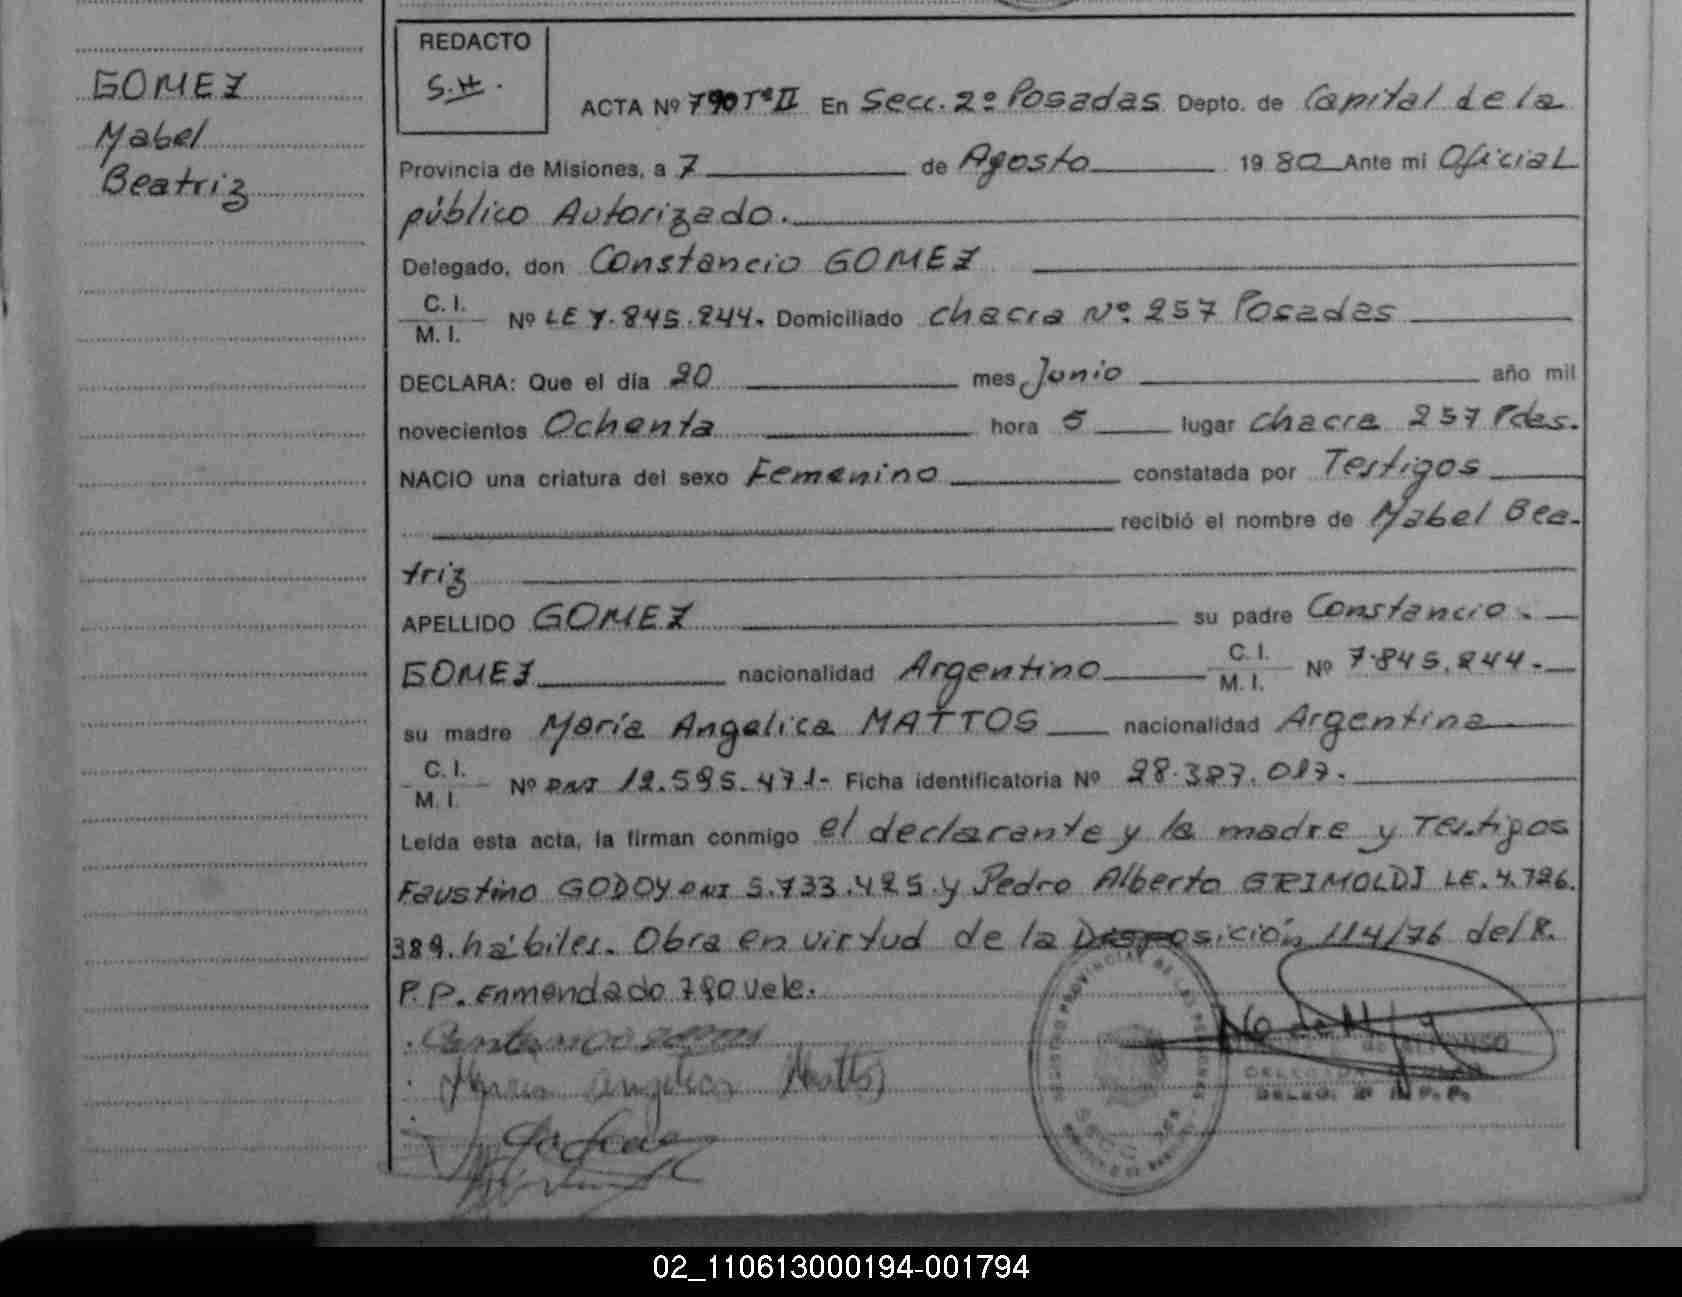 GOMEZ
Mabel
Beatriz
REDACTO
S.H.
ACTA Nº 790 Tº II En Secc. 2º Posadas Depto. de Capital de la
Provincia de Misiones, a 7 de Agosto 1980 Ante mi Oficial
público Autorizado.
Delegado, don Constancio GOMEZ
C. I.
M. I. Nº LE 7.845.244. Domiciliado chacra Nº 257 Posadas
DECLARA: Que el día 20 mes Junio año mil
novecientos Ochenta hora 5 lugar chacra 257 Pdas.
NACIO una criatura del sexo Femenino constatada por Testigos
recibió el nombre de Mabel Bea-
triz
APELLIDO GOMEZ su padre Constancio.
GOMEZ nacionalidad Argentino C. I. M. I. Nº 7.845.244.
su madre María Angelica MATTOS nacionalidad Argentina
C. I.
M. I. Nº DNI 12.595.471- Ficha identificatoria Nº 28.387.017.
Leída esta acta, la firman conmigo el declarante y la madre y Testigos
Faustino GODOY DNI 5.733.425 y Pedro Alberto GRIMOLDI LE. 4.726.
389. hábiles. Obra en virtud de la Disposición 114/76 del R.
P. P. Enmendado 790 Vale.
Maria Angelica Mattos
REGISTRO PROVINCIAL DE LAS PERSONAS
02_110613000194-001794